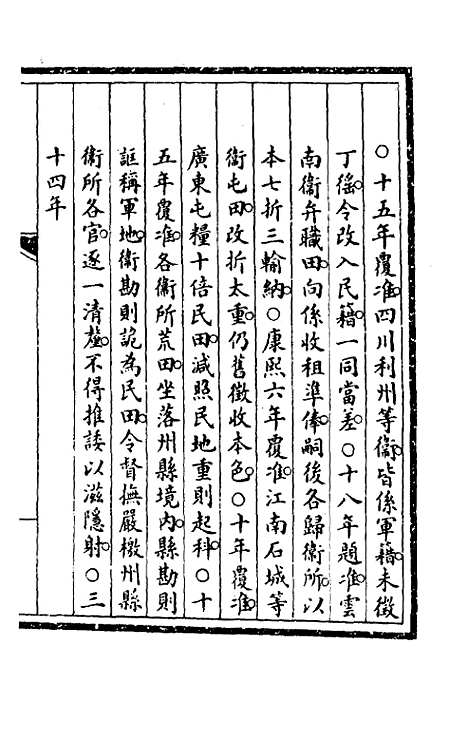 ○十五年覆准四川利州等衞皆係軍籍未徵
丁徭令改入民籍一同當差○十八年題准雲
南衞弁職田向係收租準俸嗣後各歸衞所以
本七折三輸納○康熙六年覆准江南石城等
衞屯田改折太重仍舊徵收本色○十年覆准
廣東屯糧十倍民田減照民地重則起科○十
五年覆准各衞所荒田坐落州縣境內縣勘則
誑稱軍地衞勘則詭為民田令督撫嚴檄州縣
衞所各官逐一清釐不得推諉以滋隱射○三
十四年